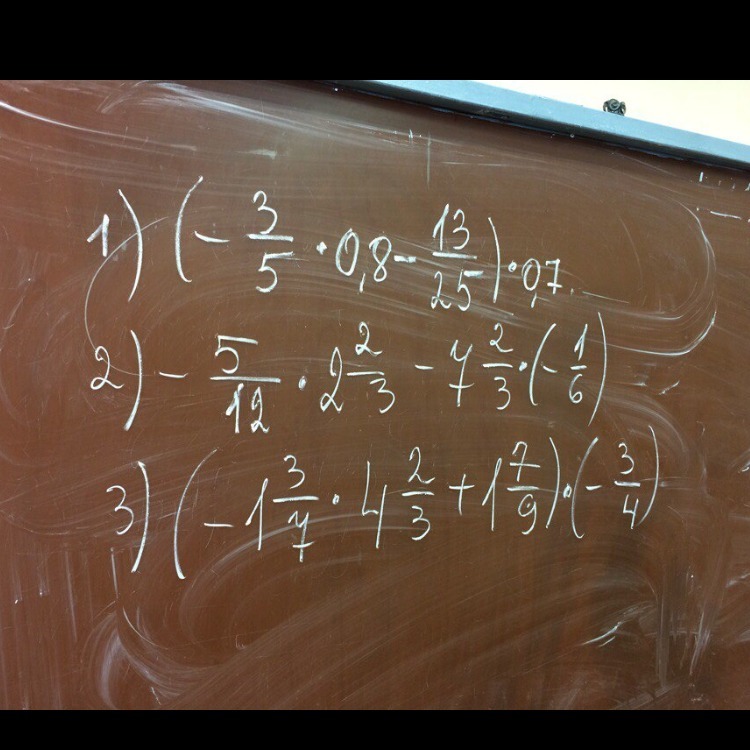 1) (- 3/5 · 0,8 - 13/25) · 0,7
2) - 5/12 · 2 2/3 - 7 2/3 · (- 1/6)
3) (- 1 3/7 · 4 2/3 + 1 7/9) · (- 3/4)